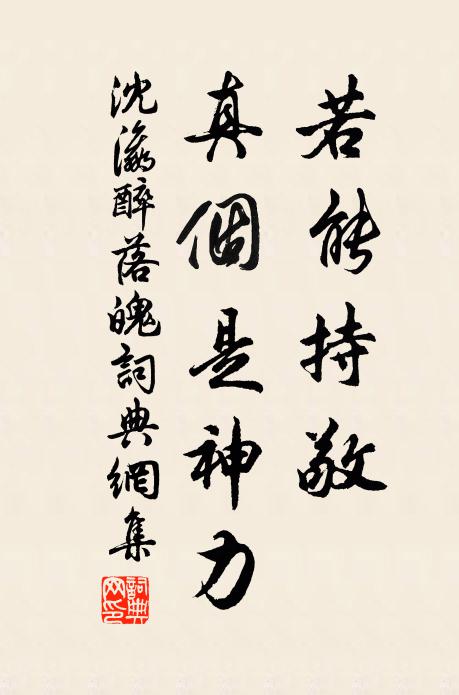 若能持敬
真個是神力
沈瀛醉落魄詞典網集
詞典网印